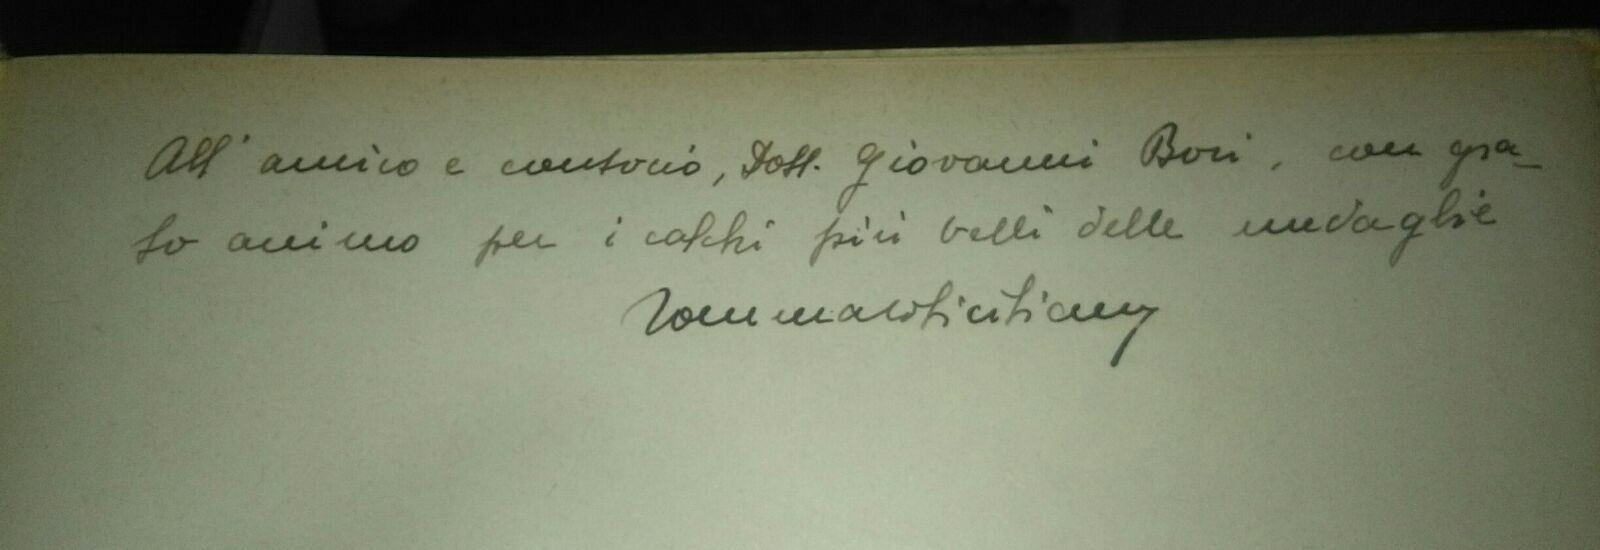 All' amico e consocio, Dott. Giovanni Bori, con gra-
to animo per i calchi più belli delle medaglie
Tommaso Siciliano